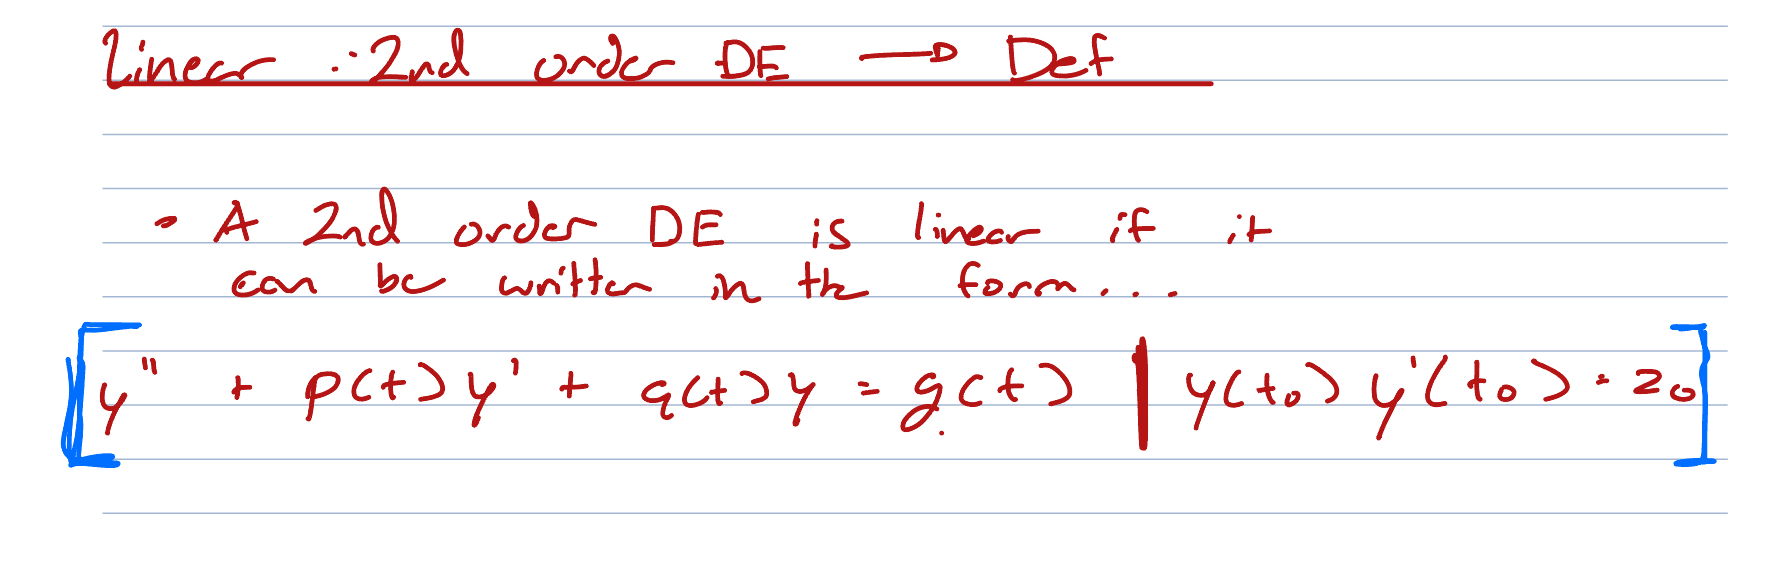 Linear 2nd order DE → Def
• A 2nd order DE is linear if it
can be written in the form...
y'' + p(t)y' + q(t)y = g(t) | y(t₀) y'(t₀) = z₀